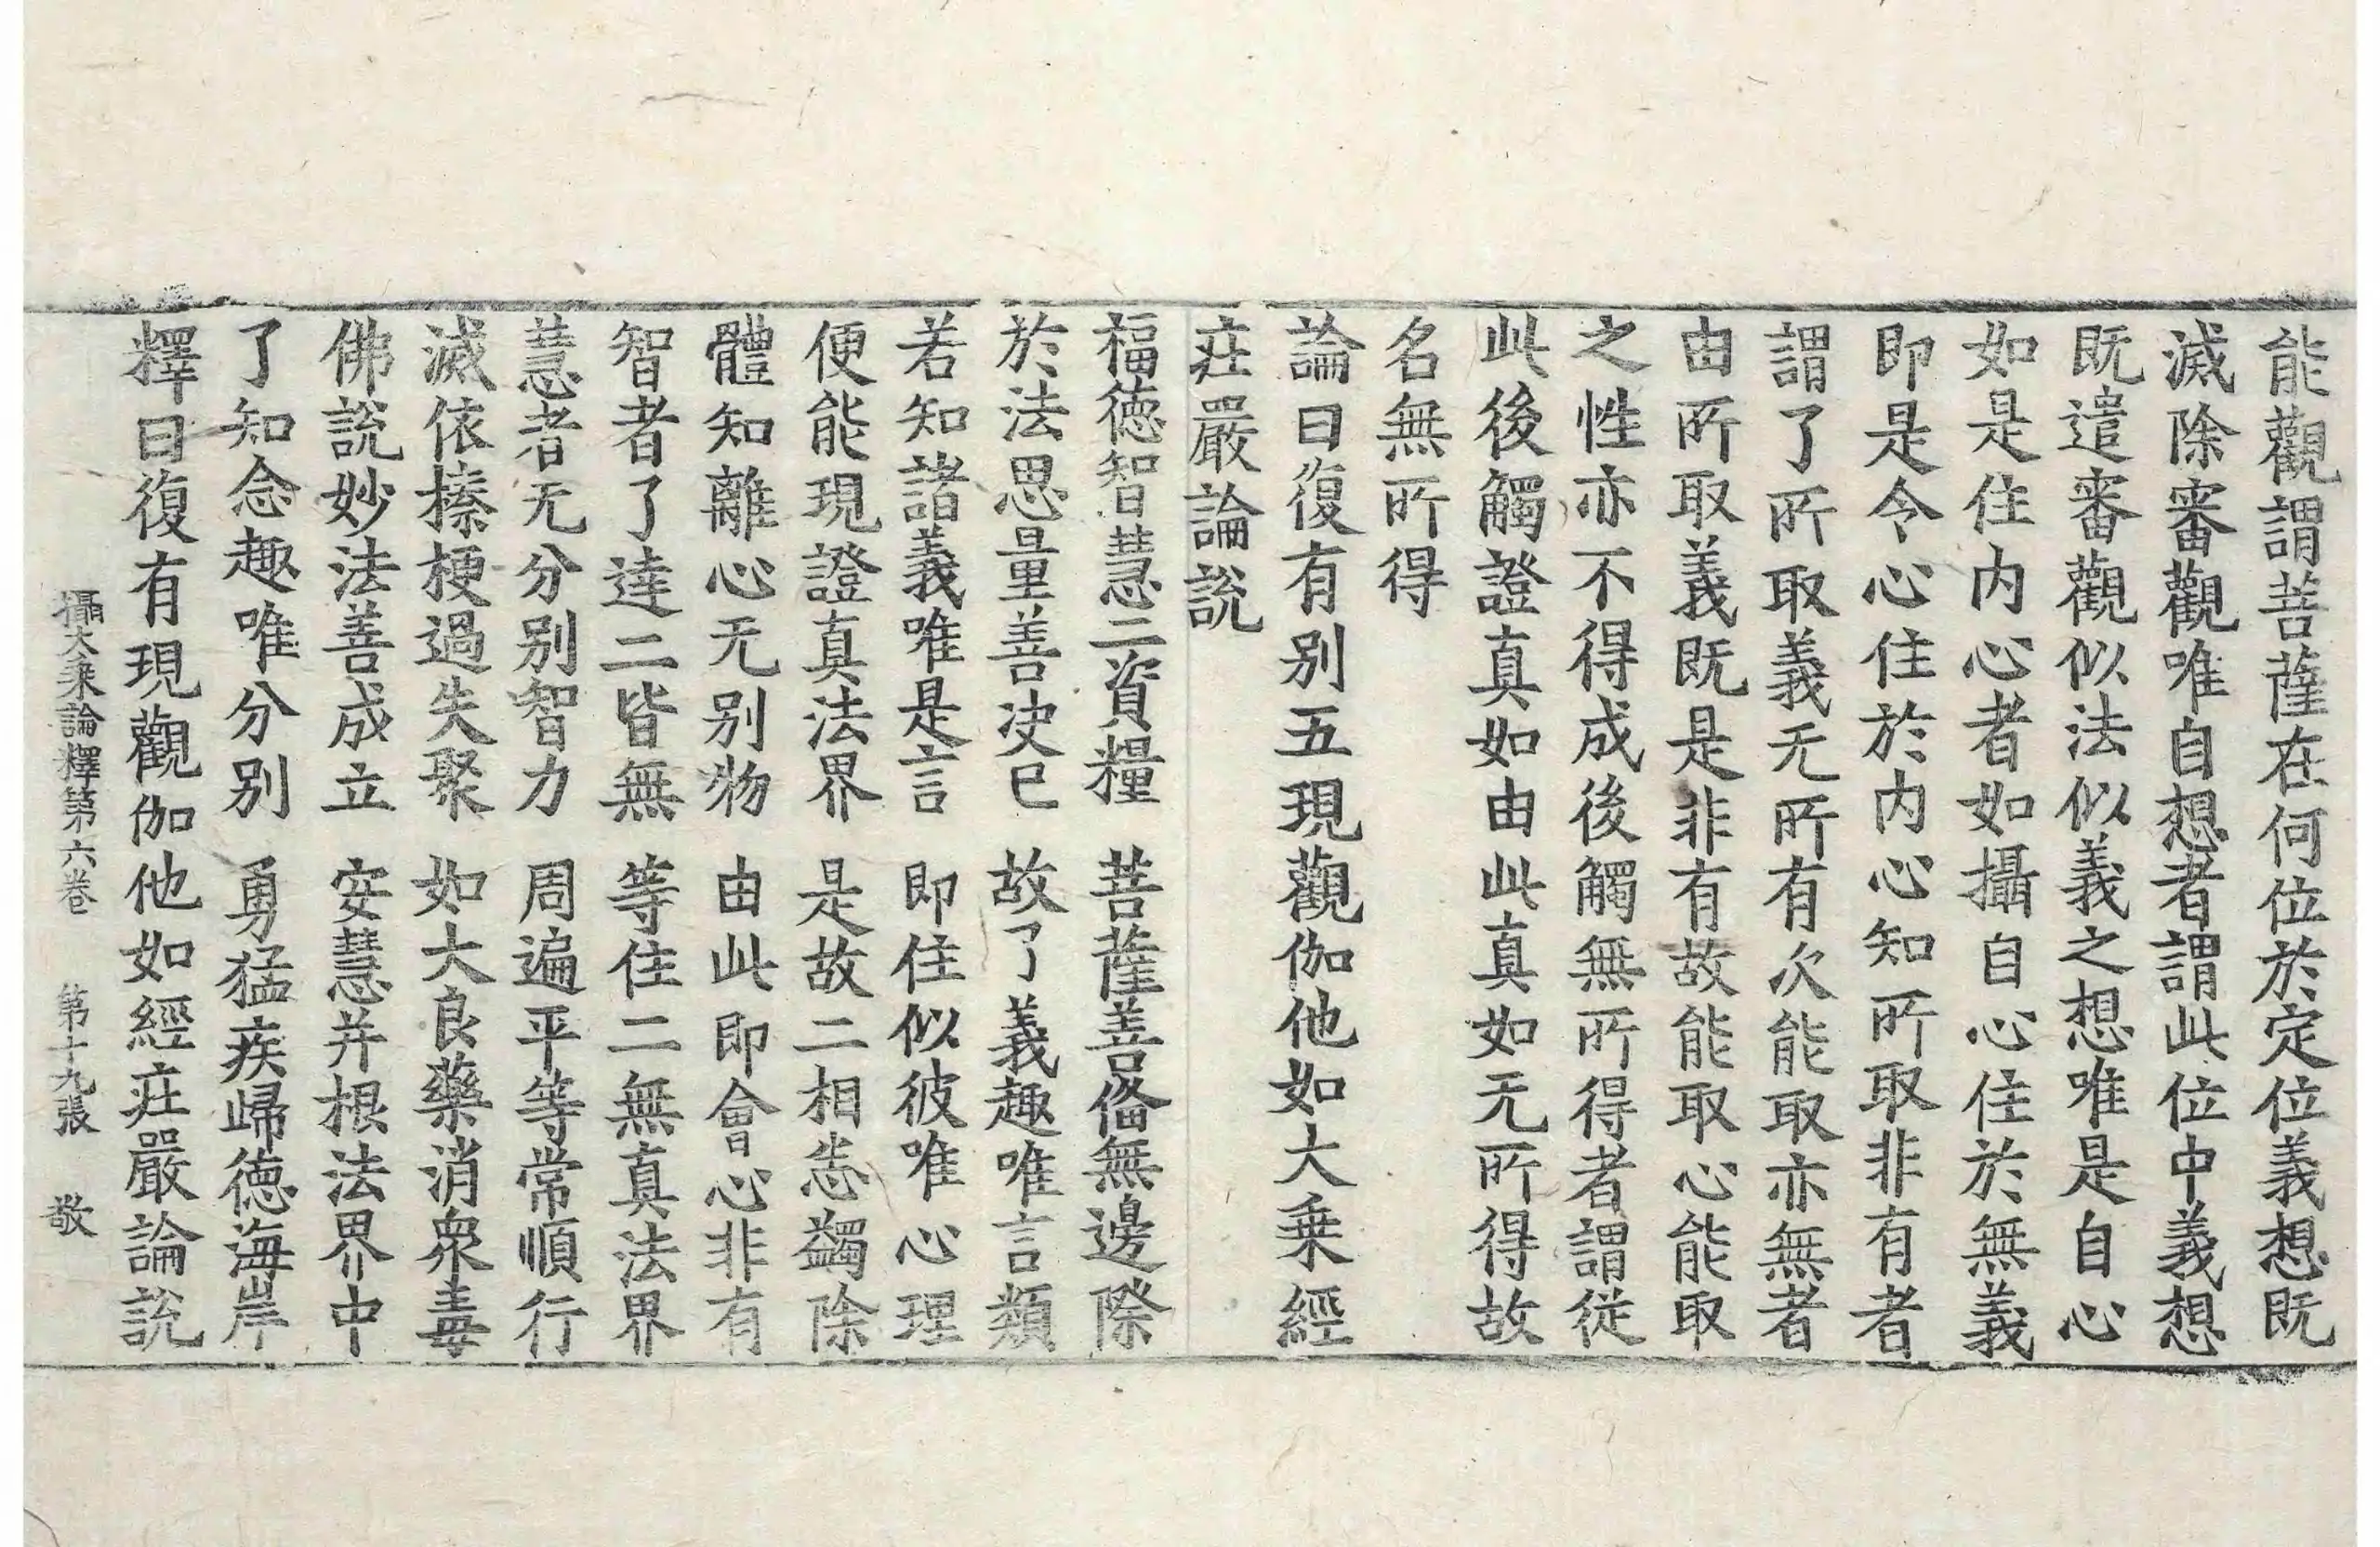 能觀謂菩薩在何位於定位義想既
滅除審觀唯自想者謂此位中義想
既遣審觀似法似義之想唯是自心
如是住内心者如攝自心住於無義
即是令心住於内心知所取非有者
謂了所取義无所有次能取亦無者
由所取義既是非有故能取心能取
之性亦不得成後觸無所得者謂從
此後觸證真如由此真如无所得故
名無所得
論曰復有别五現觀伽他如大乗經
荘嚴論說
福德智慧二資糧　菩薩善俻無邊際
於法思量善决已　故了義趣唯言類
若知諸義唯是言　即住似彼唯心理
便能現證真法界　是故二相悉蠲除
體知離心无别物　由此即會心非有
智者了達二皆無　等住二無真法界
慧者无分别智力　周遍平等常順行
滅依榛梗過失聚　如大良藥消衆毒
佛說妙法善成立　安慧并根法界中
了知念趣唯分别　勇猛疾歸德海岸
釋曰復有現觀伽他如經荘嚴論說
攝大乗論釋第六卷　第十九張　敬